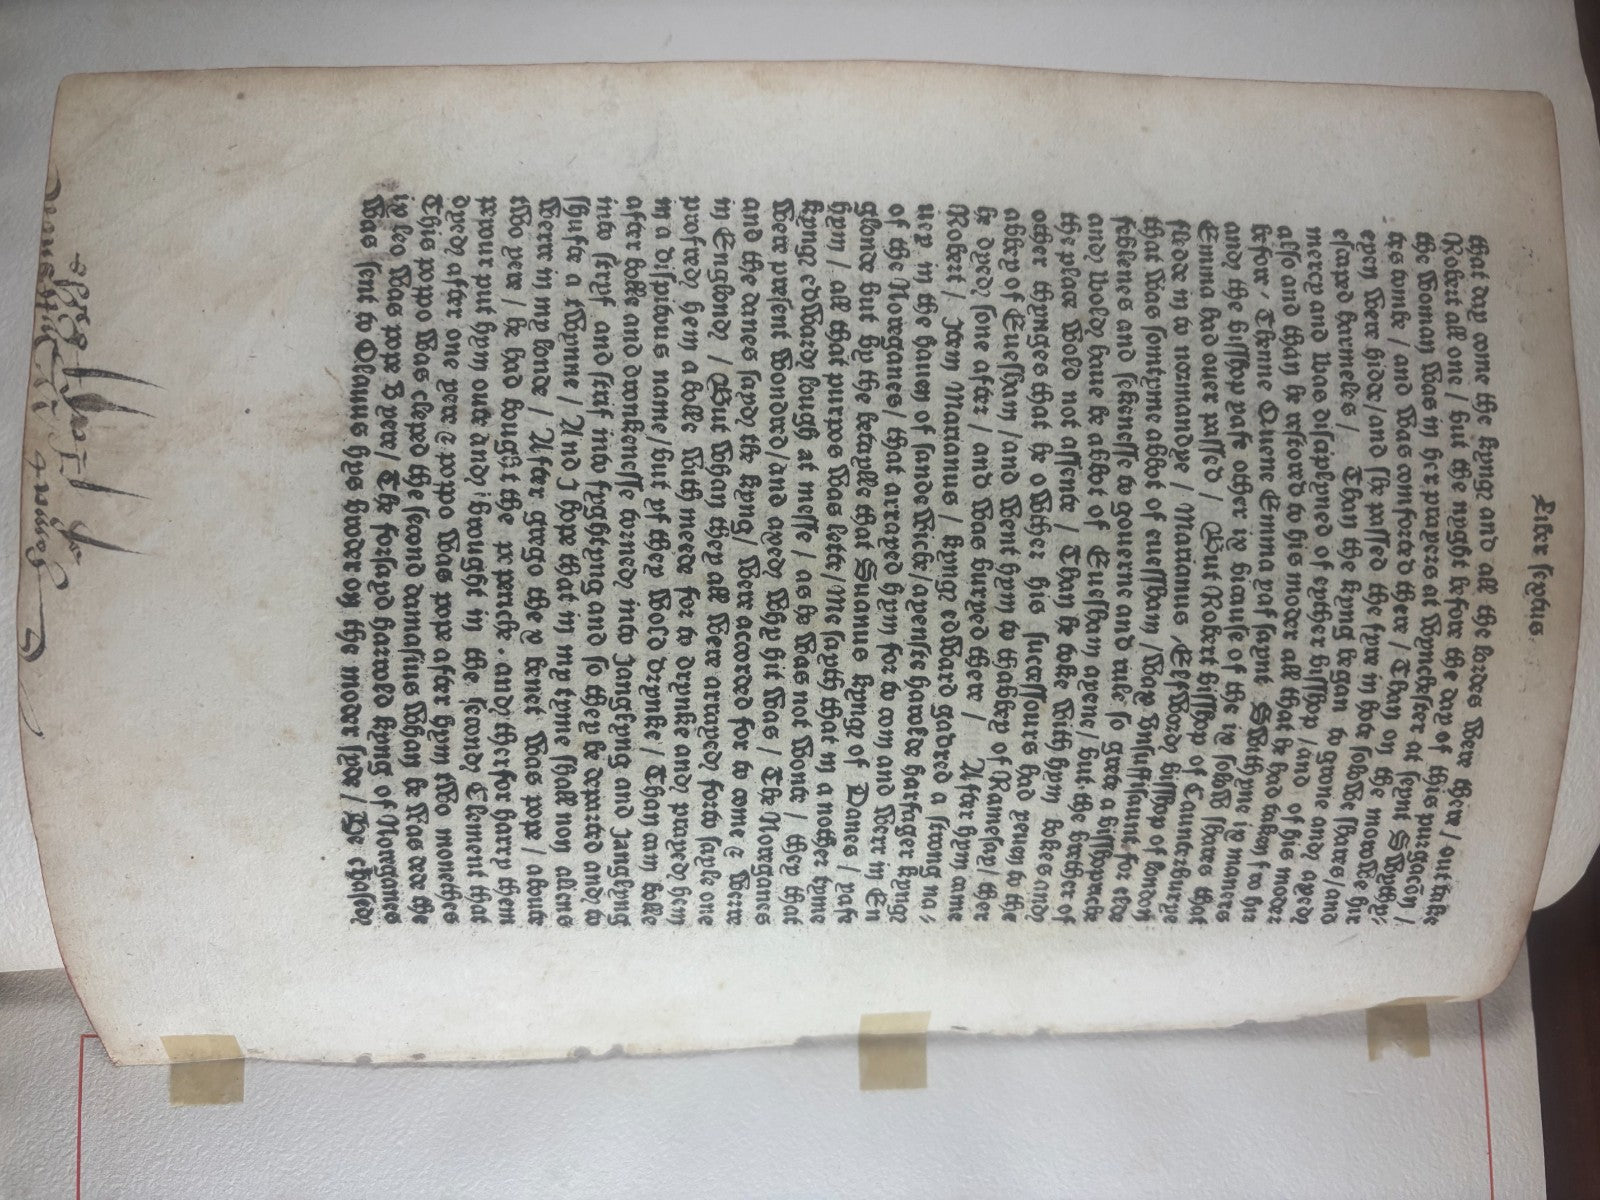 Liber sextus
that day come the kynge and all the lordes were there / outtake
Robert all one / but the nyght before the day of this purgacion /
the woman was in her prayers at Wynchester at seynt Swythy/
tes tombe / and was comforted there / Than on the morowe hir
eyen were hidde / and she passed the fyre in hote solowe shares / and
escaped harmeles / Than the kyng began to grone and axed
mercy and was disciplyned of eyther bisshop / and of his moder
also and than he restored to his moder all that he had taken fro her
before / Thenne Quene Emma yaf saynt Swithyne ix maners
and the bisshop yafe other ix bicause of the ix solow shares that
Emma had ouer passed / But Robert bisshop of Caunterburye
fledde in to normandye / Marianus Elfword bisshop of london
that was somtyme abbot of euesham / was insuffisaunt for
feblenes and sekenesse to gouerne and rule so grete a bisshopryche
and wold haue be abbot of Euesham ayene / but the brether of
the place wold not assente / Than he toke with hym bokes and
other thynges that he other his successours had yeuen to the
abbey of Euesham / and went hym to thabbey of Ramesey / ther
he dyed sone after / and was buryed there / After hym came
Robert / Iam Marianus / kynge edward gadred a strong na/
uey in the hauen of sandwich / ayenste harald harfager kynge
of the Norganes / that arrayed hym for to come and werr in En
glonde but by the bataylle that Suanus kynge of Danes / yafe
hym / all that purpos was lette / Me sayth that in a nother tyme
kynge edward lough at messe / as he was not wonte / they that
were present wondred / and axed why hit was / The Norganes
and the danes sayd the kyng / were accorded for to come & werre
in Englond / But whan they all were arrayed forto sayle one
profred hem a bolle with mede for to drynke and prayed hem
in a dispitous name / but yf they wold drynke / Than cam bolle
after bolle and dronkenesse torned in to Ianglyng and Ianglyng
into stryf and strif into fyghtyng and so they be departed and to
shufte a swynne / And I hope that in my tyme shall non alyens
werre in my londe / After gregore the & benet was pope / aboute
two yere / he had bought the papriche . and therfor harry them
perour put hym oute and brought in the second Clement that
dyed after one yere & popo was pope after hym two monethes
This popo was cleped the second damasius whan he was ded the
ix leo was pope 8 yere / The forsayd harrald kyng of Norganes
was sent to Olauus hys broder on the moder syde / He chased